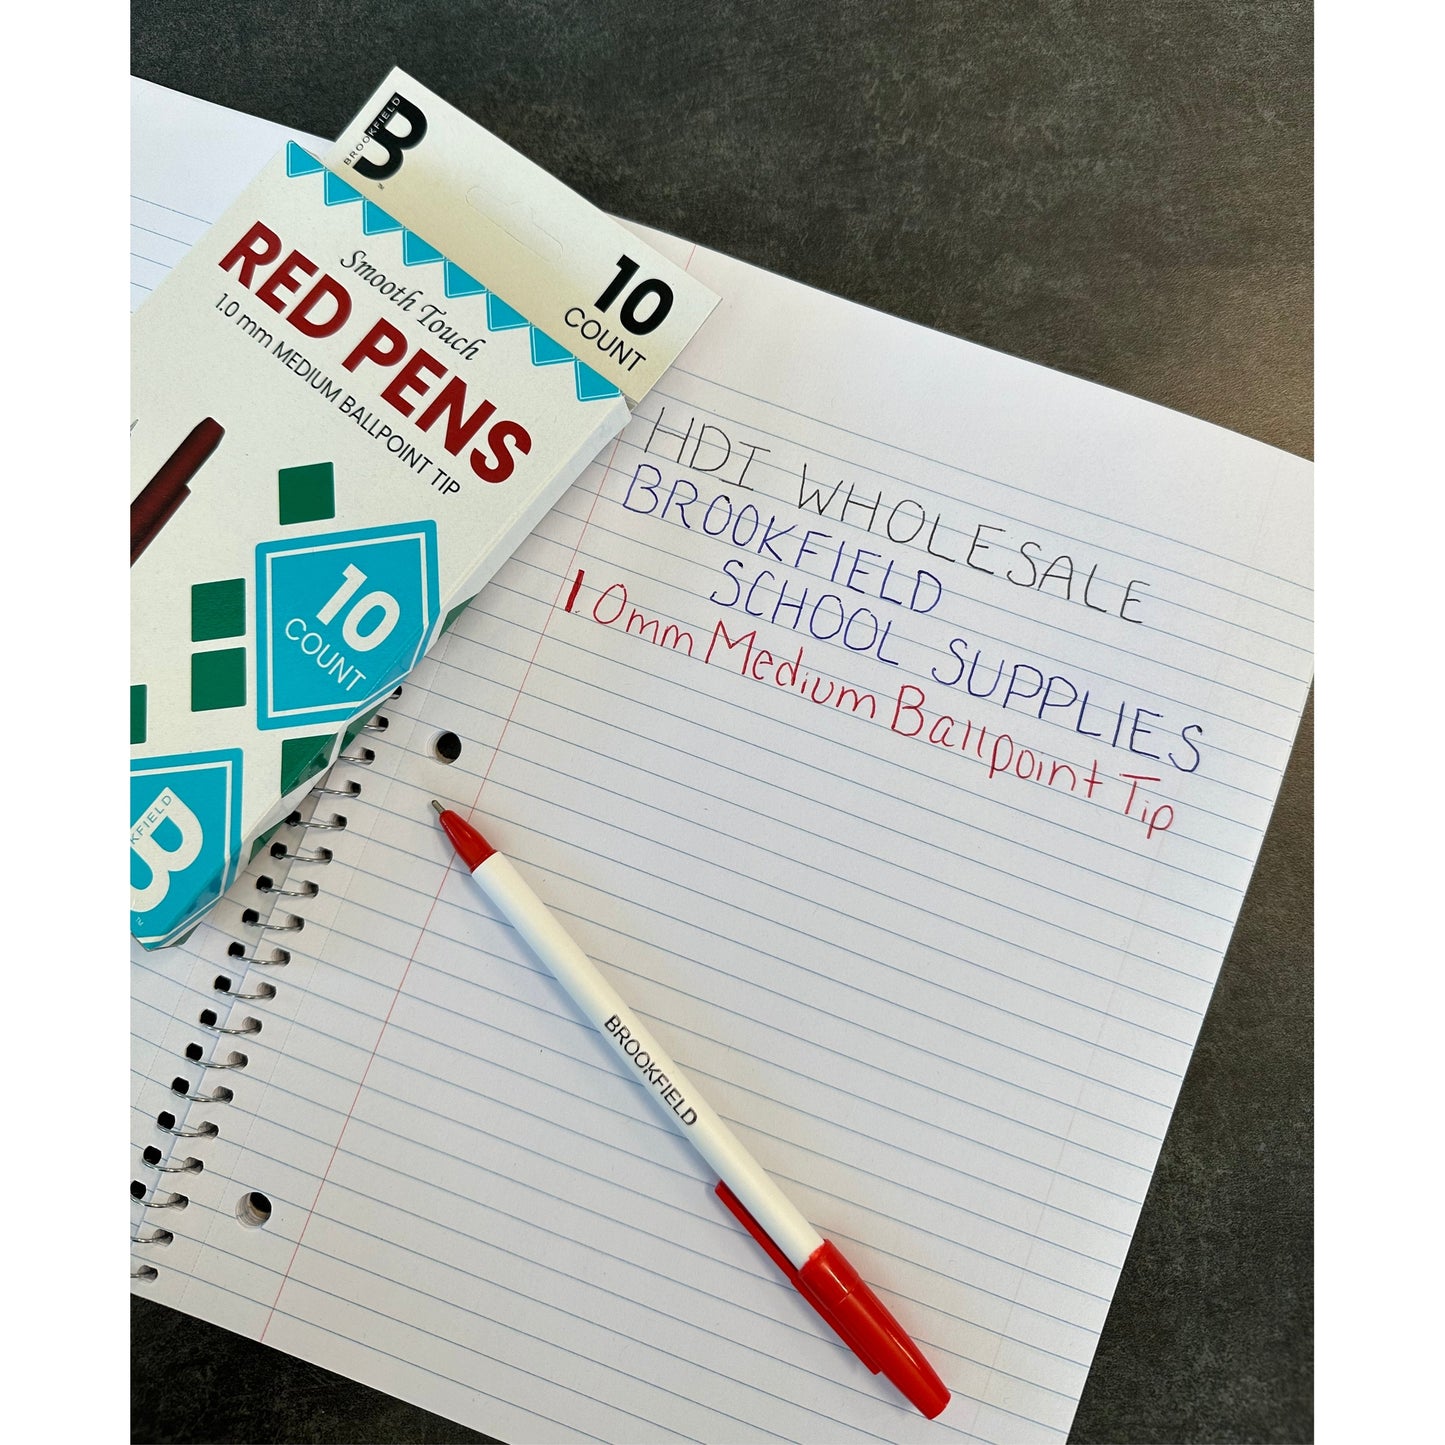 BROOKFIELD
B
10
COUNT
Smooth Touch
RED PENS
1.0 mm MEDIUM BALLPOINT TIP
10
COUNT
KFIELD
B
HDI WHOLESALE
BROOKFIELD
SCHOOL SUPPLIES
1.0mm Medium Ballpoint Tip
BROOKFIELD